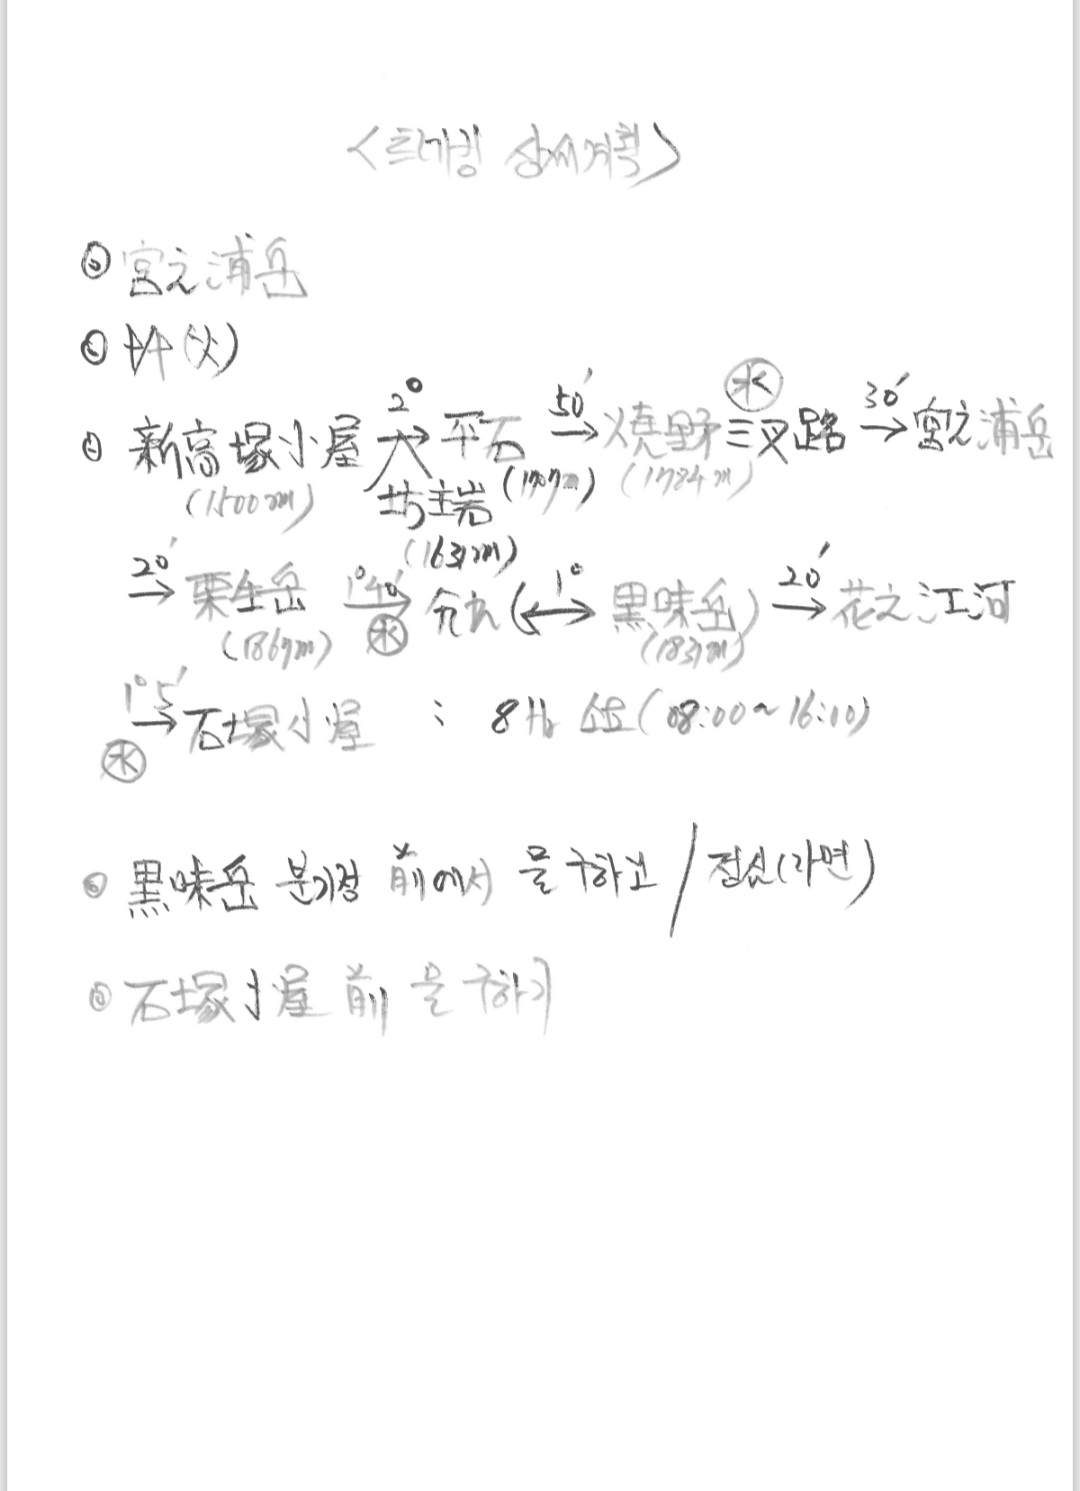 <트레킹 상세계획>
⊙ 宮之浦岳
⊙ 5/5(火)
⊙ 新高塚小屋 2° → 平石 50′ → 焼野三叉路 ㊌ 30′ → 宮之浦岳
(1500m) 坊主岩 (1707m) (1784m)
(1631m)
20′ → 栗生岳 1°40′ → 分れ (1° ↔ 黒味岳) 20′ → 花之江河
(1867m) ㊌ (1831m)
1°5′ → 石塚小屋 : 8Hr 소요(08:00~16:10)
㊌
⊙ 黒味岳 분기점 前에서 물 구하고 / 점심(라면)
⊙ 石塚小屋 前 물 구하기